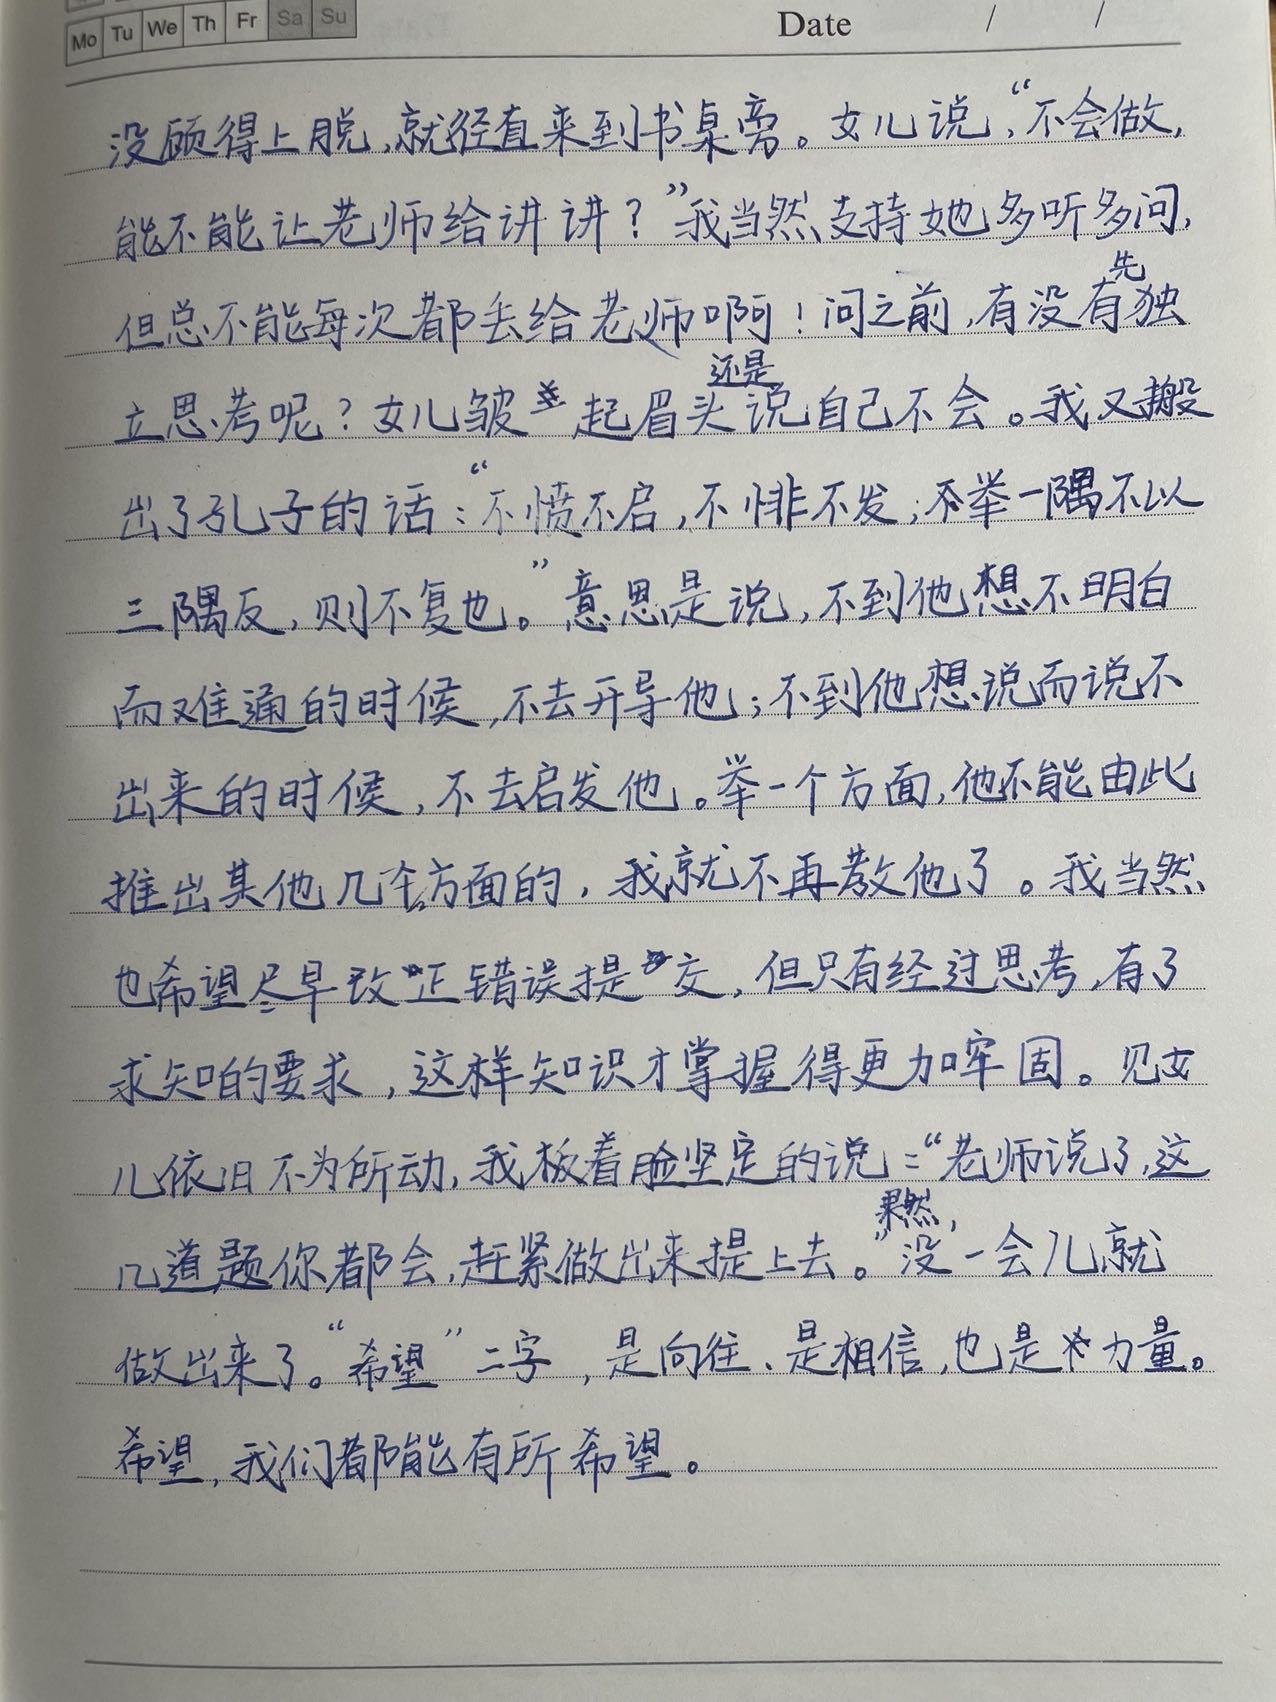 Mo Tu We Th Fr Sa Su
Date / /
没顾得上脱,就径直来到书桌旁。女儿说,“不会做,
能不能让老师给讲讲?”我当然支持她多听多问,
但总不能每次都丢给老师啊!问之前,有没有先独
立思考呢?女儿皱起眉头还是说自己不会。我又搬
出了孔子的话:“不愤不启,不悱不发;不举一隅不以
三隅反,则不复也。”意思是说,不到他想不明白
而难通的时候,不去开导他;不到他想说而说不
出来的时候,不去启发他。举一个方面,他不能由此
推出其他几个方面的,我就不再教他了。我当然
也希望尽早改正错误提交,但只有经过思考,有了
求知的要求,这样知识才掌握得更加牢固。见女
儿依旧不为所动,我板着脸坚定的说:“老师说了,这
几道题你都会,赶紧做出来提上去。”果然,没一会儿就
做出来了。“希望”二字,是向往、是相信,也是力量。
希望,我们都能有所希望。